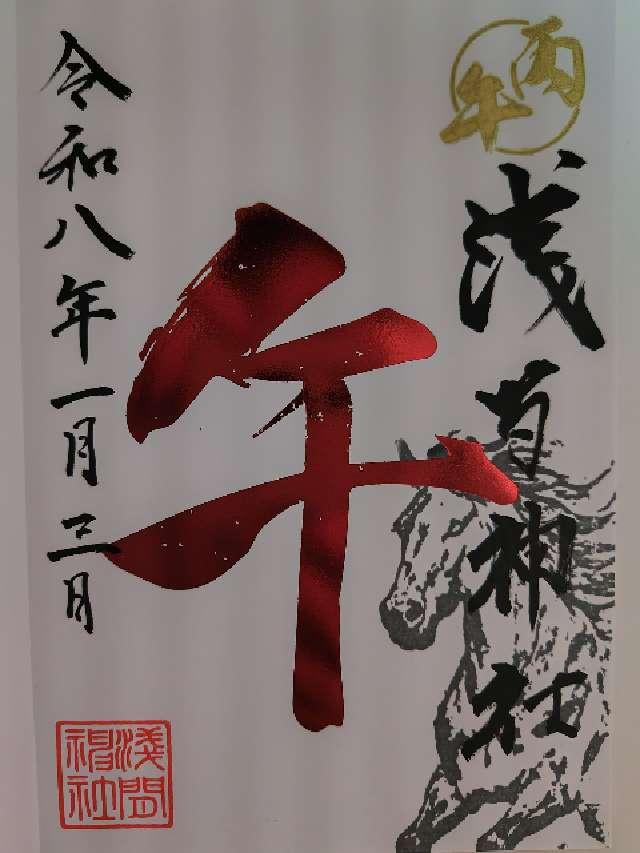 丙午
浅間神社
午
令和八年一月三日
淺間神社